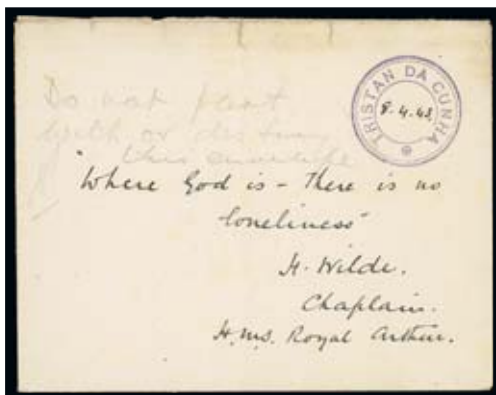 Do not
this envelope
TRISTAN DA CUNHA
8.4.43.
"Where God is - There is no
loneliness"
H. Wilde.
Chaplain.
H.M.S. Royal Arthur.